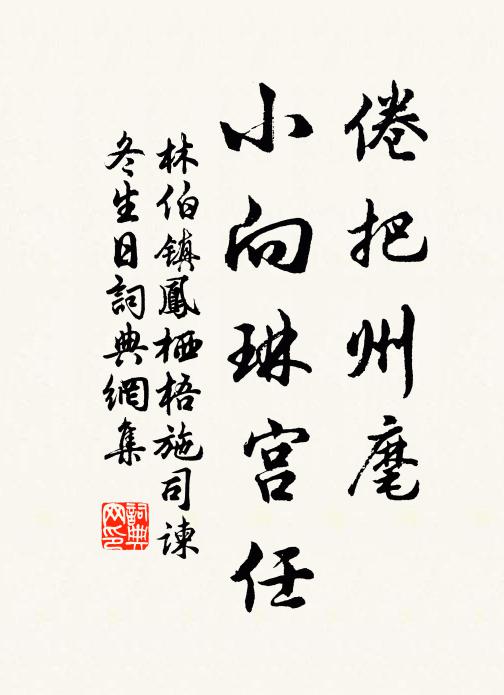 倦把州麾
小向琳宫任
林伯镇鳳栖梧施司諫
冬生日詞典網集
詞典
网印